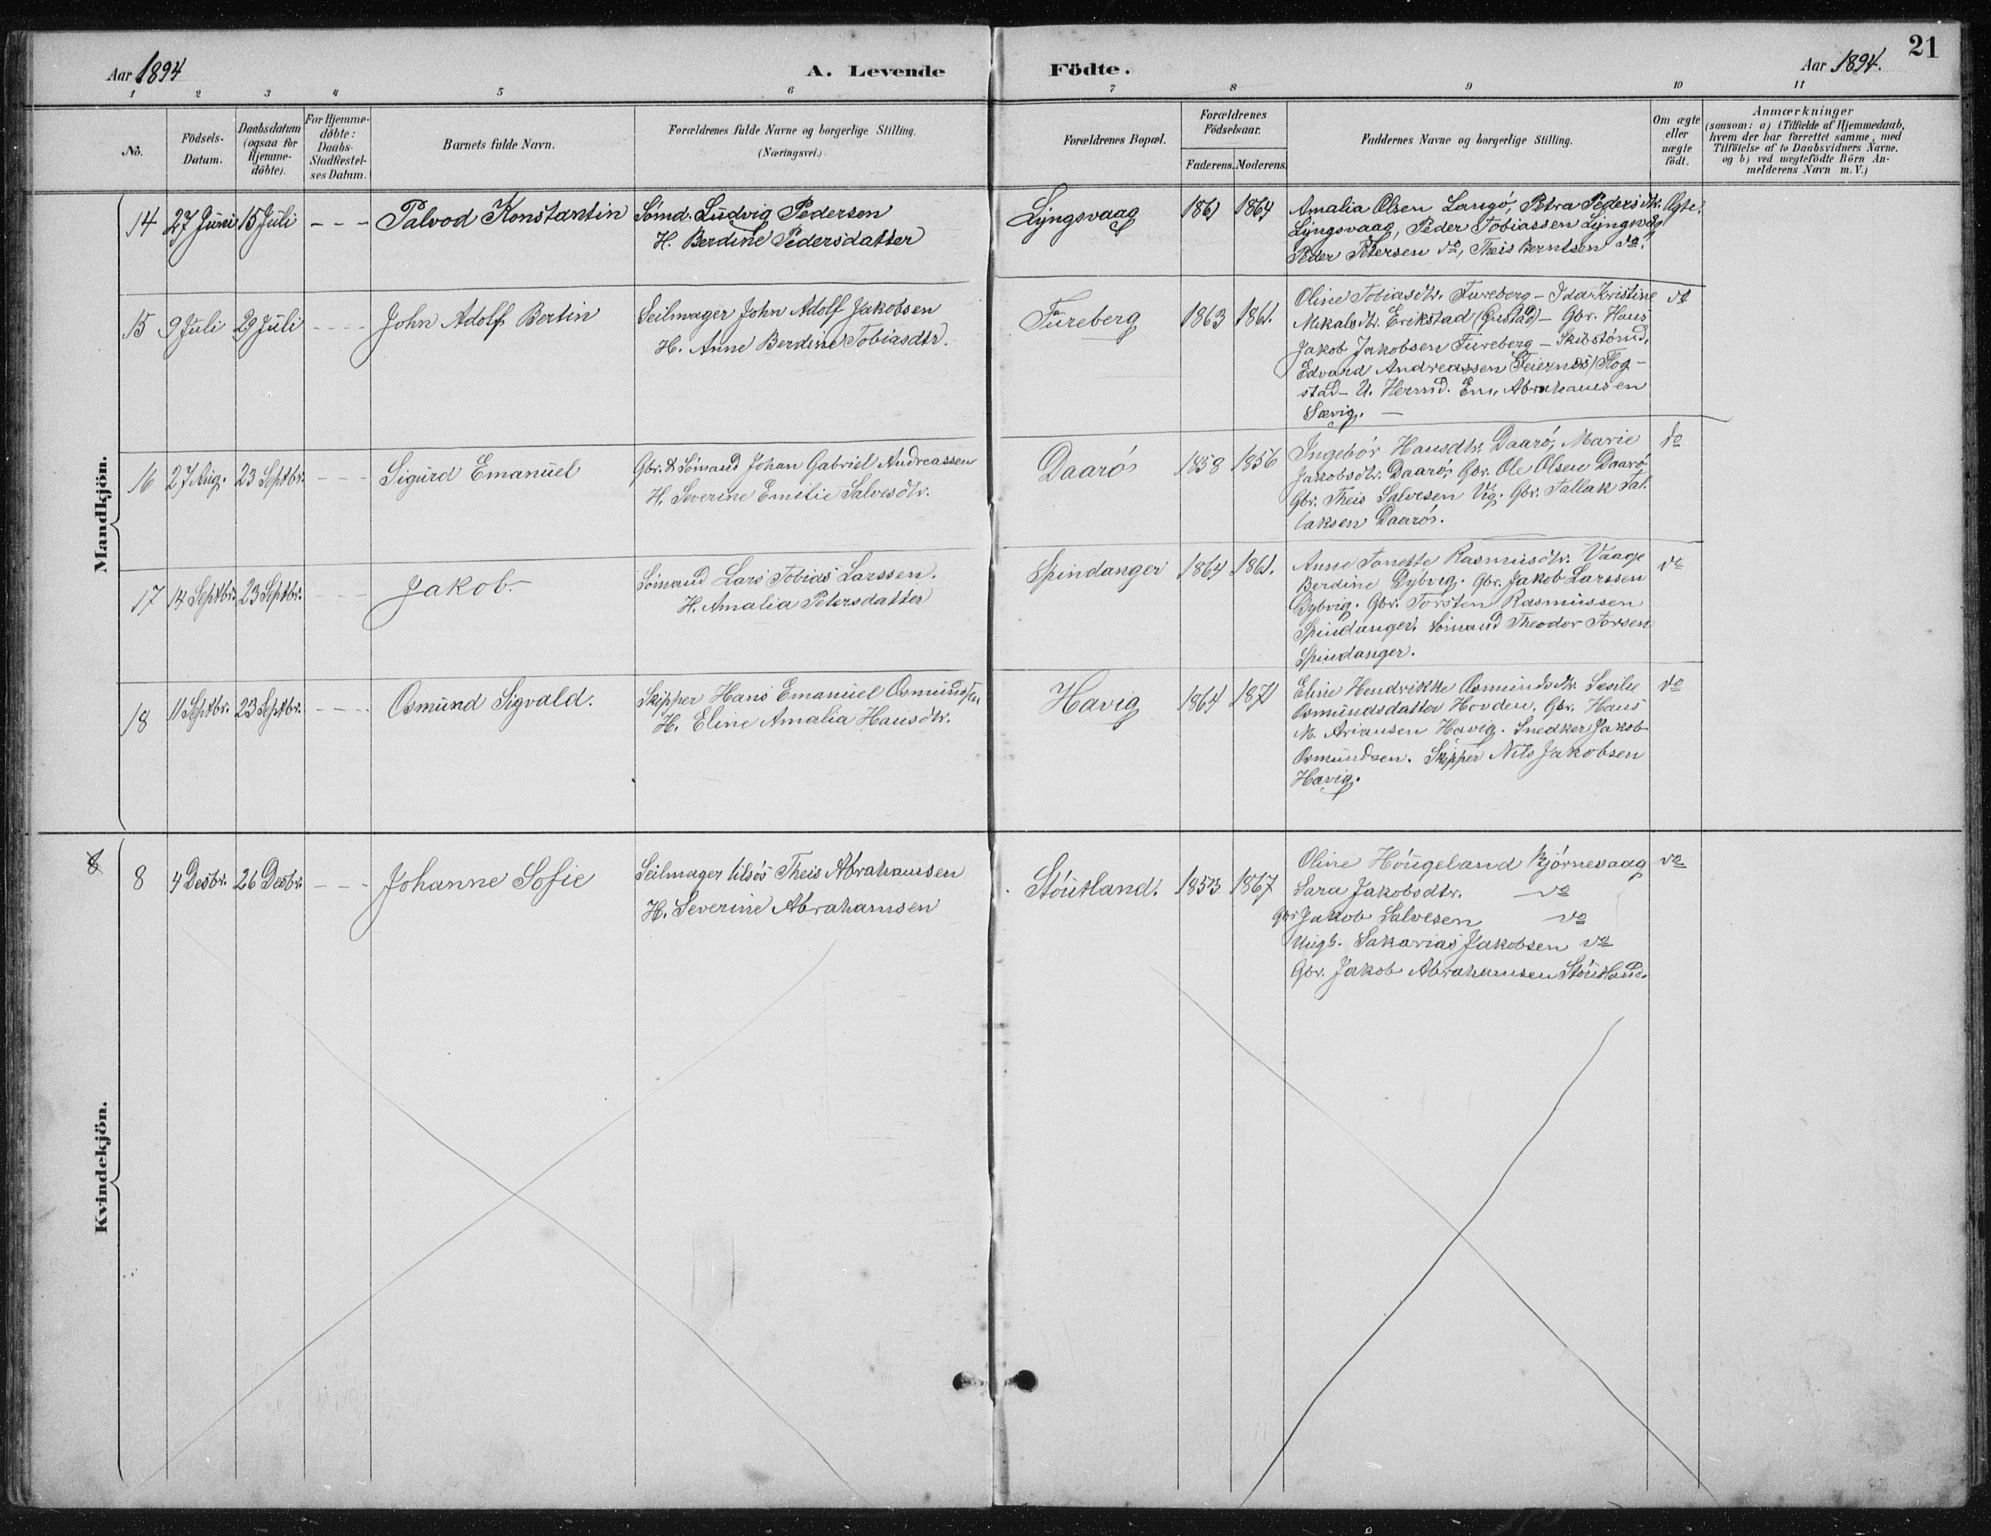 21
Aar 1894 A. Levende Födte. Aar 1894.
1 2 3 4 5 6 7 8 9 10 11
No.
Födsels-
Datum.
Daabsdatum
(ogsaa for
Hjemme-
döbte).
For Hjemme-
döbte:
Daabs-
Stadfæstel-
ses Datum.
Barnets fulde Navn.
Forældrenes fulde Navne og borgerlige Stilling.
(Næringsvei.)
Forældrenes Bopæl.
Forældrenes
Födselsaar.
Faderens. Moderens.
Faddernes Navne og borgerlige Stilling.
Om ægte
eller
uægte
födt.
Anmærkninger
(saasom: a) i Tilfælde af Hjemmedaab,
hvem der har forrettet samme, med
Tilföielse af to Daabsvidners Navne.
og b) ved uægtefödte Börn An-
melderens Navn m. V.)
Mandkjön.
14 27 Juni 15 Juli - - - Palvod Konstantin
Sömd. Ludvig Pedersen
H. Berdine Pedersdatter
Lyngsvaag 1861 1864
Amalia Olsen Langö, Petra Pedersdtr.
Lyngsvaag, Peder Tobiassen Lyngsvåg
Peder Petersen do, Theis Berntsen do.
Ægte.
15 9 Juli 29 Juli - - - - John Adolf Bertin
Seilmager John Adolf Jakobsen
H. Anne Berdine Tobiasdtr.
Fureberg 1863 1861.
Oline Tobiasdtr. Fureberg – Ida Kristine
Mikalsdtr. Erikstad (Gustad) – Gbr. Hans
Jakob Jakobsen Fureberg – Skibstömd.
Edvard Andreassen Feiernes/Flog-
stad – U. Herrnd. Em. Abrahamsen
Sævig. —
do
16 27 Aug. 23 Septbr. - - - Sigurd Emanuel
Gbr. & Sömand Johan Gabriel Andreassen
H. Severine Emilie Salvesdtr.
Daarö 1858 1856
Ingebor Hansdtr. Daarö, Marie
Jakobsdtr. Daarö, Gbr. Ole Olsen Daarö
Gbr. Theis Salvesen Vig. Gbr. Tallak Tal-
laksen Daarö.
do
17 14 Septbr. 23 Septbr. - - - Jakob
Sömand Lars Tobias Larssen.
H. Amalia Petersdatter
Spindanger 1864 1861.
Anne Tonette Rasmusdtr. Vaage
Berdine Dybvig. Gbr. Jakob Larssen
Dybvig. Gbr. Torsten Rasmussen
Spindanger. Sömand Theodor Torsen
Spindanger.
do
18 11 Septbr. 23 Septbr. - - - - Osmund Sigvald.
Skipper Hans Emanuel Osmundsen
H. Eline Amalia Hansdtr.
Havig 1864 1871
Eline Hendrikke Osmundsdtr. Sesilie
Osmundsdatter Hovden. Gbr. Hans
M. Ariansen Havig. Snedker Jakob
Osmundsen. Skipper Nils Jakobsen
Havig.
do
Kvindekjön.
8 8 4 Desbr. 26 Desbr. - - - Johanne Sofie
Seilmager tilsös Theis Abrahamsen
H. Severine Abrahamsen
Stöutland. 1853 1867
Oline Höugeland Bjørnevaag
Sara Jakobsdtr. do
Gbr Jakob Salvesen do
Ungk. Sakarias Jakobsen do
Gbr. Jakob Abrahamsen Stöutland.
do